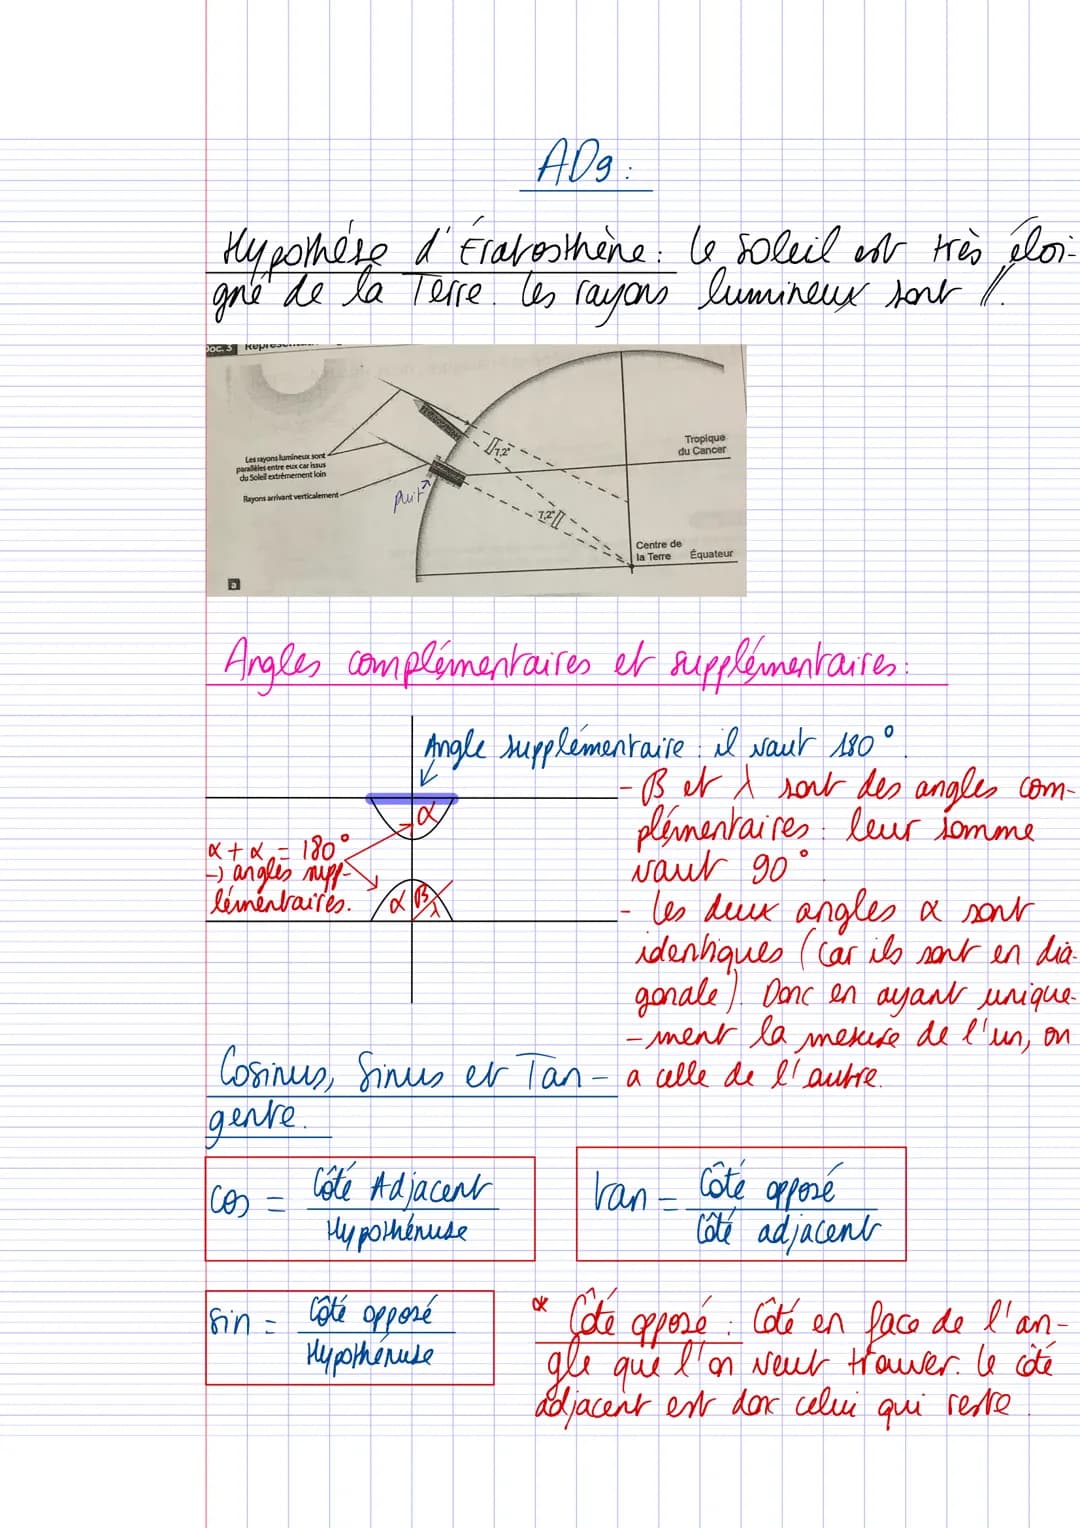 AD9 :
Hypothèse d'Ératosthène : le Soleil est très éloi-
gné de la Terre. Les rayons lumineux sont //.
Doc. 3
Les rayons lumineux sont
parallèles entre eux car issus
du Soleil extrêmement loin
Rayons arrivant verticalement
puit
7,2°
7,2°
Tropique
du Cancer
Centre de
la Terre
Équateur
a
Angles complémentaires et supplémentaires :
Angle supplémentaire : il vaut 180°
α
α + α = 180°
-> angles supp-
lémentaires.
α β λ
- β et λ sont des angles com-
plémentaires : leur somme
vaut 90°
- les deux angles α sont
identiques (car ils sont en dia-
gonale). Donc en ayant unique-
-ment la mesure de l'un, on
a celle de l'autre.
Cosinus, Sinus et Tan-
gente.
cos = Côté Adjacent
Hypothénuse
tan = Côté opposé
Côté adjacent
sin = Côté opposé
Hypothénuse
* Côté opposé : Côté en face de l'an-
gle que l'on veut trouver. le côté
adjacent est donc celui qui reste.